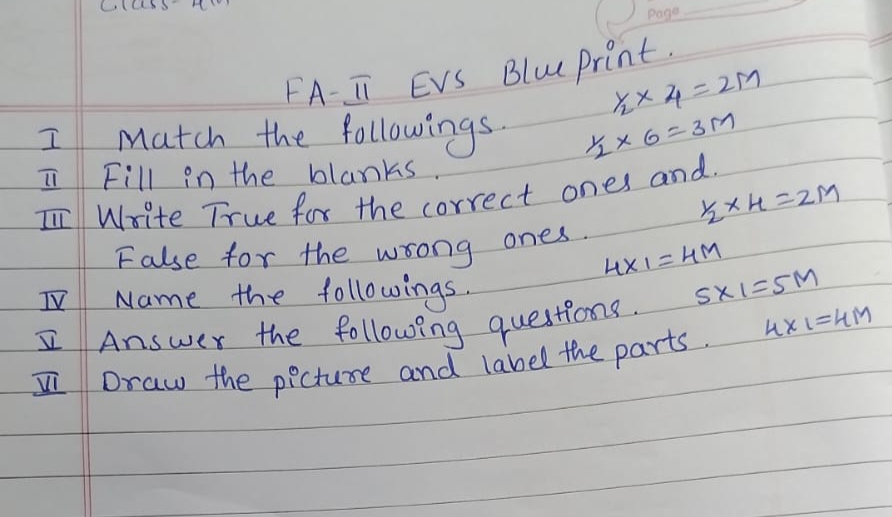 Page
FA-II EVS Blue print.
I Match the followings. ½ × 4 = 2M
II Fill in the blanks. ½ × 6 = 3M
III Write True for the correct ones and.
False for the wrong ones. ½ × 4 = 2M
IV Name the followings. 4×1=4M
V Answer the following questions. 5×1=5M
VI Draw the picture and label the parts. 4×1=4M